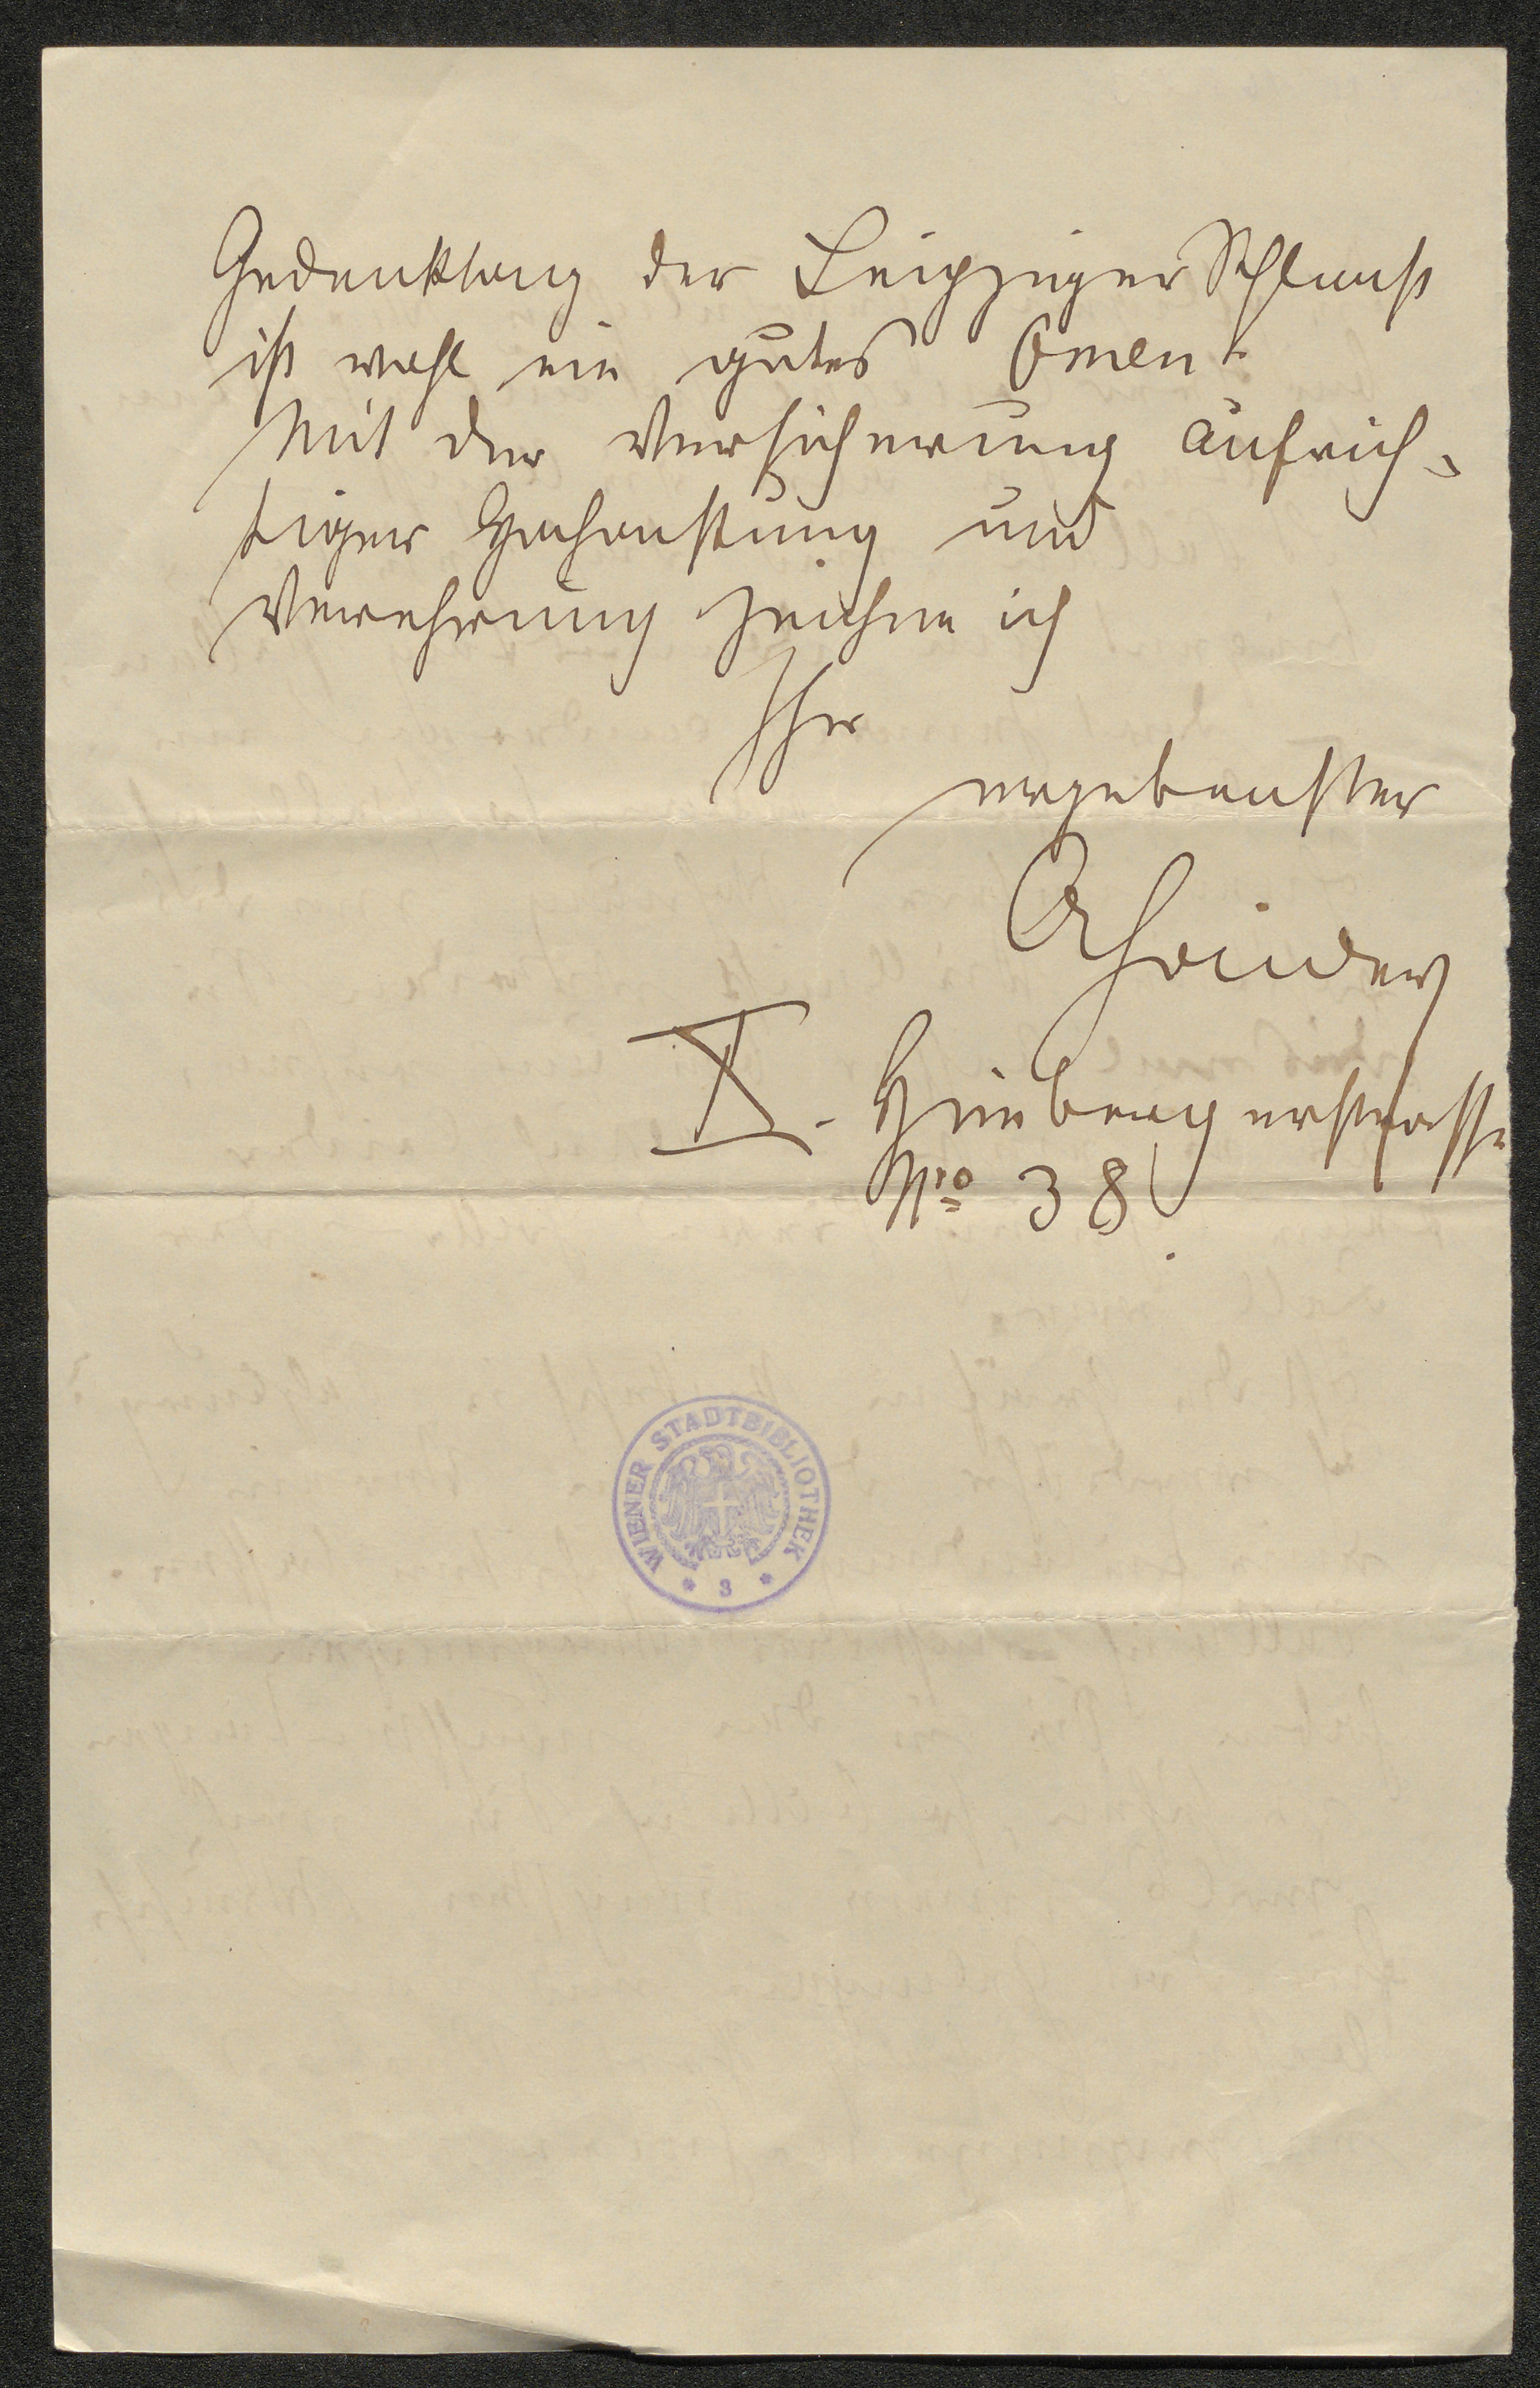 Gedenktag der Leipziger Schlacht
ist wohl ein gutes Omen.
Mit der Versicherung aufrich-
tiger Hochachtung und
Verehrung zeichne ich
Ihr
ergebenster
X. Himbergerstrasse
Nro 38.
WIENER STADTBIBLIOTHEK
* 3 *